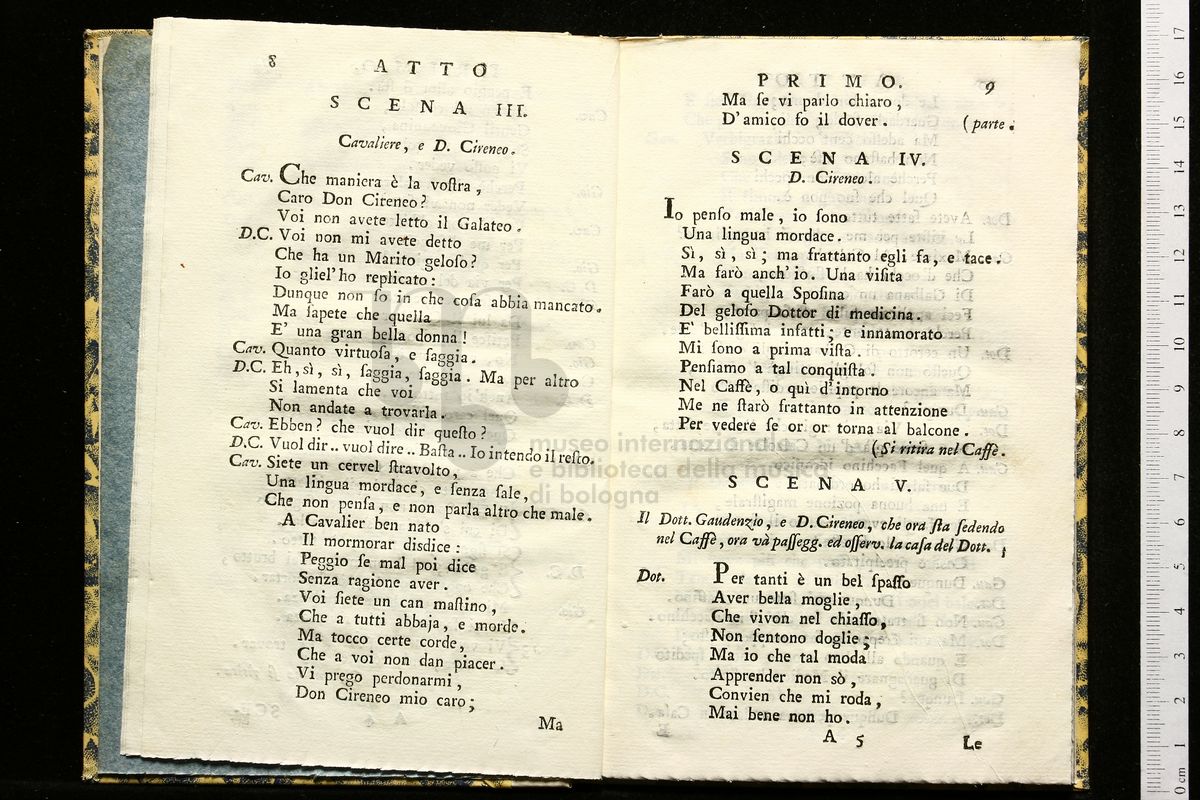 8
ATTO
SCENA III.
Cavaliere, e D. Cireneo.
Cav. Che maniera è la voſtra,
Caro Don Cireneo?
Voi non avete letto il Galateo.
D.C. Voi non mi avete detto
Che ha un Marito geloſo?
Io gliel'ho replicato:
Dunque non ſo in che coſa abbia mancato.
Ma ſapete che quella
E' una gran bella donna!
Cav. Quanto virtuoſa, e ſaggia.
D.C. Eh, sì, sì, ſaggia, ſaggia. Ma per altro
Si lamenta che voi
Non andate a trovarla.
Cav. Ebben? che vuol dir queſto?
D.C. Vuol dir.. vuol dire.. Baſta.. Io intendo il reſto.
Cav. Siete un cervel ſtravolto,
Una lingua mordace, e ſenza ſale,
Che non penſa, e non parla altro che male.
A Cavalier ben nato
Il mormorar disdice:
Peggio ſe mal poi dice
Senza ragione aver.
Voi ſiete un can maſtino,
Che a tutti abbaja, e morde.
Ma tocco certe corde,
Che a voi non dan piacer.
Vi prego perdonarmi,
Don Cireneo mio caro;
Ma
PRIMO.
9
Ma ſe vi parlo chiaro,
D'amico fo il dover. (parte.
SCENA IV.
D. Cireneo.
Io penſo male, io ſono
Una lingua mordace.
Sì, sì, sì; ma frattanto egli fa, e tace.
Ma farò anch'io. Una viſita
Farò a quella Spoſina
Del geloſo Dottor di medicina.
E' belliſſima infatti; e innamorato
Mi ſono a prima viſta.
Penſiamo a tal conquiſta.
Nel Caffè, o quì d'intorno
Me ne ſtarò frattanto in attenzione
Per vedere ſe or or torna al balcone.
(Si ritira nel Caffè.
SCENA V.
Il Dott. Gaudenzio, e D. Cireneo, che ora ſta ſedendo
nel Caffè, ora và paſſegg. ed oſſerv. la caſa del Dott.
Dot. Per tanti è un bel ſpaſſo
Aver bella moglie,
Che vivon nel chiaſſo,
Non ſentono doglie;
Ma io che tal moda
Apprender non sò,
Convien che mi roda,
Mai bene non ho.
A 5
Le
museo internazionale
e biblioteca della musica
di bologna